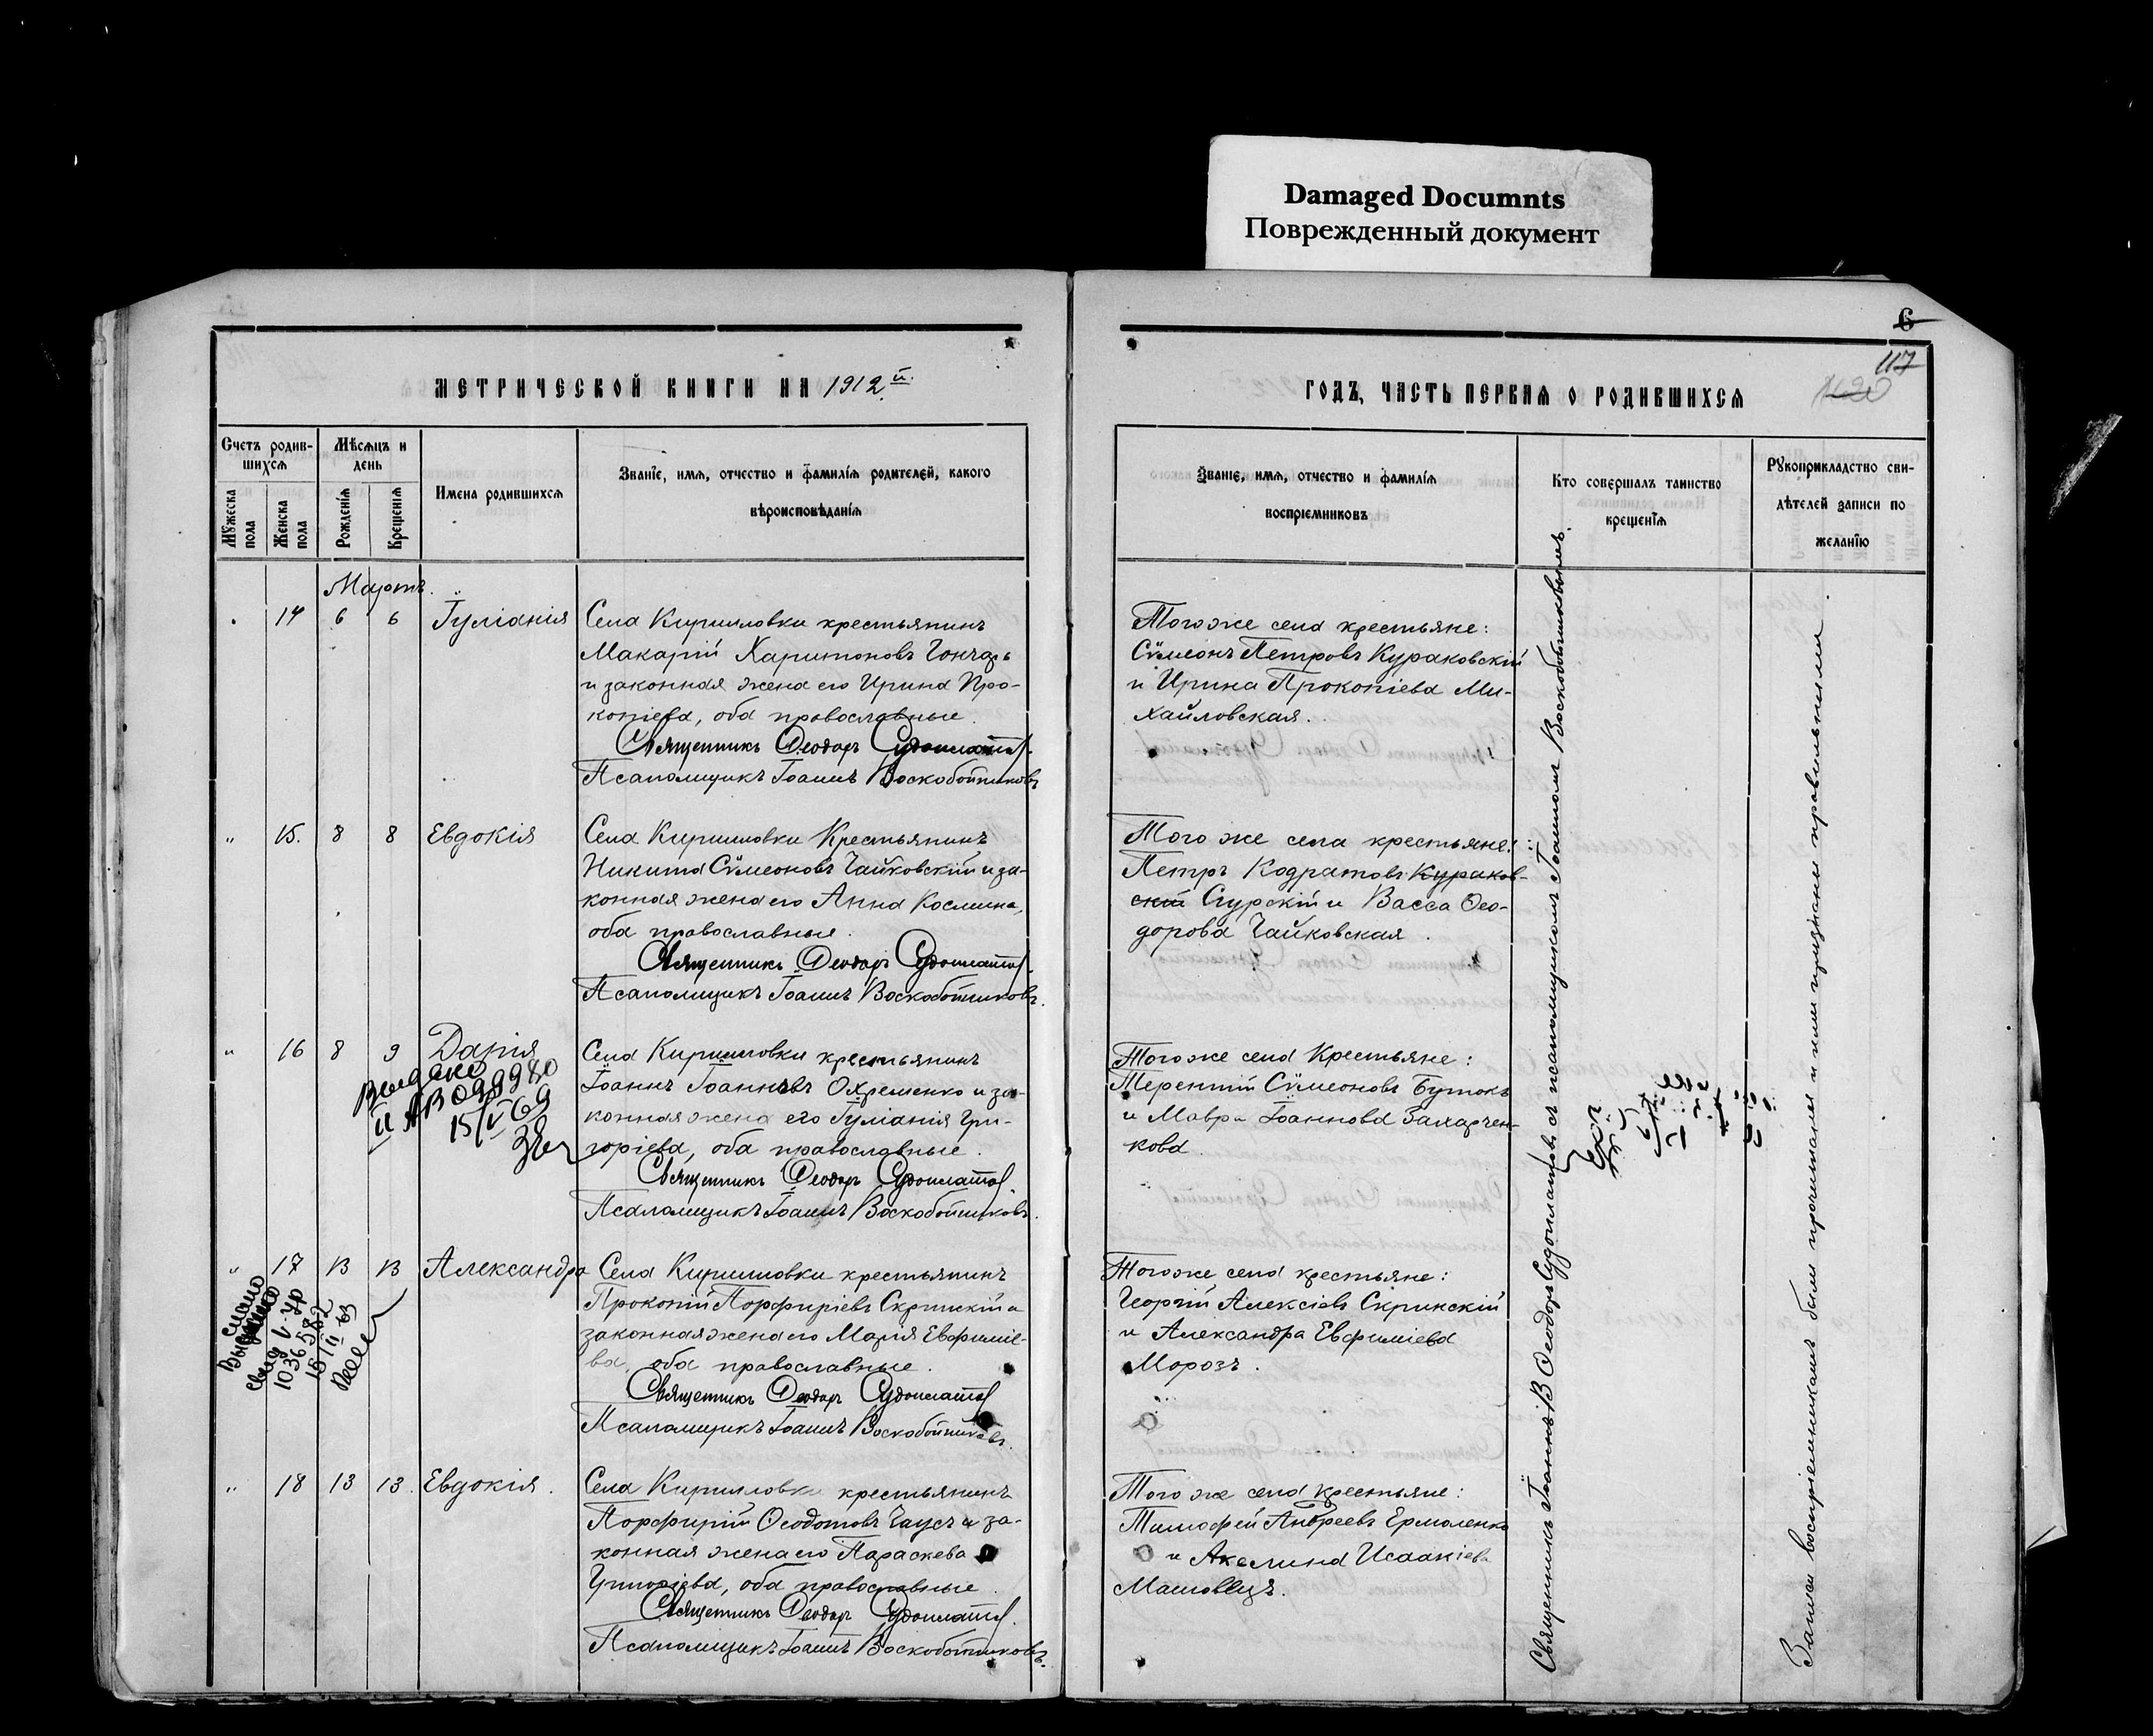 Damaged Documnts
Поврежденный документ
6
117
МЕТРИЧЕСКОЙ КНИГИ НА 1912й
ГОДЪ, ЧАСТЬ ПЕРВАЯ О РОДИВШИХСЯ
Счетъ родив-
шихся
Мужеска
пола
Женска
пола
Мѣсяцъ и
день
Рожденія
Крещенія
Имена родившихся
Званіе, имя, отчество и фамилія родителей, какого
вѣроисповѣданія
Званіе, имя, отчество и фамилія
воспріемниковъ
Кто совершалъ таинство
крещенія
Рукоприкладство сви-
дѣтелей записи по
желанію
Мартъ.
14 6 6 Іуліанія
Села Кирилловки крестьянинъ
Макарій Харитоновъ Гончаръ
и законная жена его Ирина Про-
копіева, оба православные.
Священникъ Ѳеодоръ Судоплатов.
Псаломщикъ Іоаннъ Воскобойниковъ
Того же села крестьяне:
Сѵмеонъ Петровъ Кураковскій
и Ирина Прокопіева Ми-
хайловская.
" 15. 8 8 Евдокія
Села Кирилловки Крестьянинъ
Никита Сѵмеоновъ Чайковскій и за-
конная жена его Анна Космина,
оба православные.
Священникъ Ѳеодоръ Судоплатов.
Псаломщикъ Іоаннъ Воскобойниковъ.
Того же села крестьяне:
Петръ Кодратовъ Кураков-
скій Сгурскій и Васса Ѳео-
дорова Чайковская.
" 16 8 9 Дарія
Выдано
II АВ 0999980
15/V 69
Села Кирилловки крестьянинъ
Іоаннъ Іоанновъ Охременко и за-
конная жена его Іуліанія Гри-
горіева, оба православные.
Священникъ Ѳеодоръ Судоплатов.
Псаломщикъ Іоаннъ Воскобойниковъ.
Того же села Крестьяне:
Терентій Сѵмеоновъ Бутокъ
и Мавра Іоаннова Захарчен-
кова.
" 17 13 13 Александра
1036582
Села Кирилловки крестьянинъ
Прокопій Порфиріевъ Скринскій и
законная жена его Марія Евфиміе-
ва, оба православные.
Священникъ Ѳеодоръ Судоплатов
Псаломщикъ Іоаннъ Воскобойниковъ.
Того же села крестьяне:
Георгій Алексіевъ Скринскій
и Александра Евфиміева
Морозъ.
" 18 13 13. Евдокія.
Села Кирилловки крестьянинъ
Порфирій Ѳеодотовъ Гаусъ и за-
конная жена его Параскева
Григоріева, оба православные.
Священникъ Ѳеодоръ Судоплатов.
Псаломщикъ Іоаннъ Воскобойниковъ.
Того же села крестьяне:
Тимофей Андреевъ Ермоленко
и Акелина Исаакіева
Машовецъ.
Священникъ Ѳеодоръ Судоплатовъ съ псаломщикомъ Іоанномъ Воскобойниковымъ.
Записи воспріемникамъ были прочитаны и ими признаны правильными.